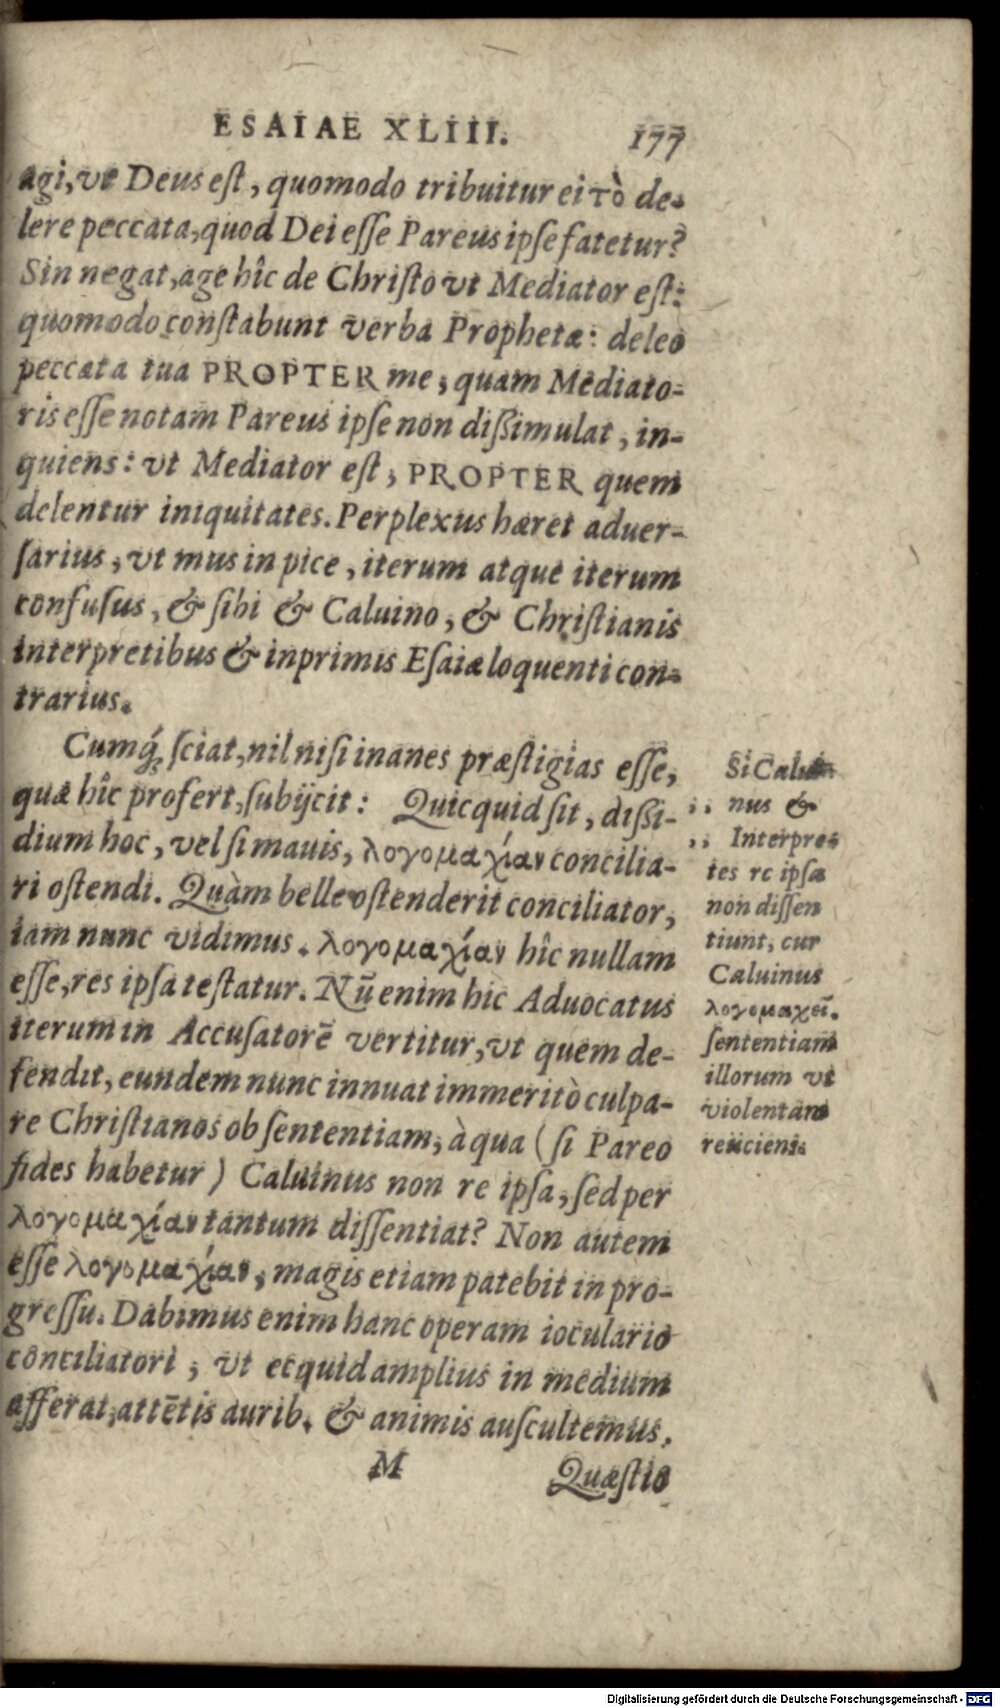 ESAIAE XLIII. 177
agi, vt Deus eſt, quomodo tribuitur ei τὸ de-
lere peccata, quod Dei eſſe Pareus ipſe fatetur?
Sin negat, age hîc de Chriſto vt Mediator eſt:
quomodo conſtabunt verba Prophetæ: deleo
peccata tua PROPTER me, quam Mediato-
ris eſſe notam Pareus ipſe non dißimulat, in-
quiens: vt Mediator eſt, PROPTER quem
delentur iniquitates. Perplexus hæret aduer-
ſarius, vt mus in pice, iterum atque iterum
confuſus, & ſibi & Caluino, & Chriſtianis
interpretibus & inprimis Eſaiæ loquenti con-
trarius.
Cumq́; ſciat, nil niſi inanes præſtigias eſſe,
quæ hîc profert, ſubijcit: Quicquid ſit, dißi-
dium hoc, vel ſi mauis, λογομαχίαν concilia-
ri oſtendi. Quàm belle oſtenderit conciliator,
iam nunc vidimus. λογομαχίαν hîc nullam
eſſe, res ipſa teſtatur. Nū enim hic Aduocatus
iterum in Accuſatorē vertitur, vt quem de-
fendit, eundem nunc innuat immeritò culpa-
re Chriſtianos ob ſententiam, à qua (ſi Pareo
fides habetur) Caluinus non re ipſa, ſed per
λογομαχίαν tantum diſſentiat? Non autem
eſſe λογομαχίαν, magis etiam patebit in pro-
greſſu. Dabimus enim hanc operam ioculario
conciliatori, vt ecquid amplius in medium
afferat, attētis aurib. & animis auſcultemus.
M Quæſtio
Si Calui-
,, nus &
,, Interpre-
tes re ipſa
non diſſen
tiunt, cur
Caluinus
λογομαχεῖ.
ſententiam
illorum vt
violentam
reiiciens.